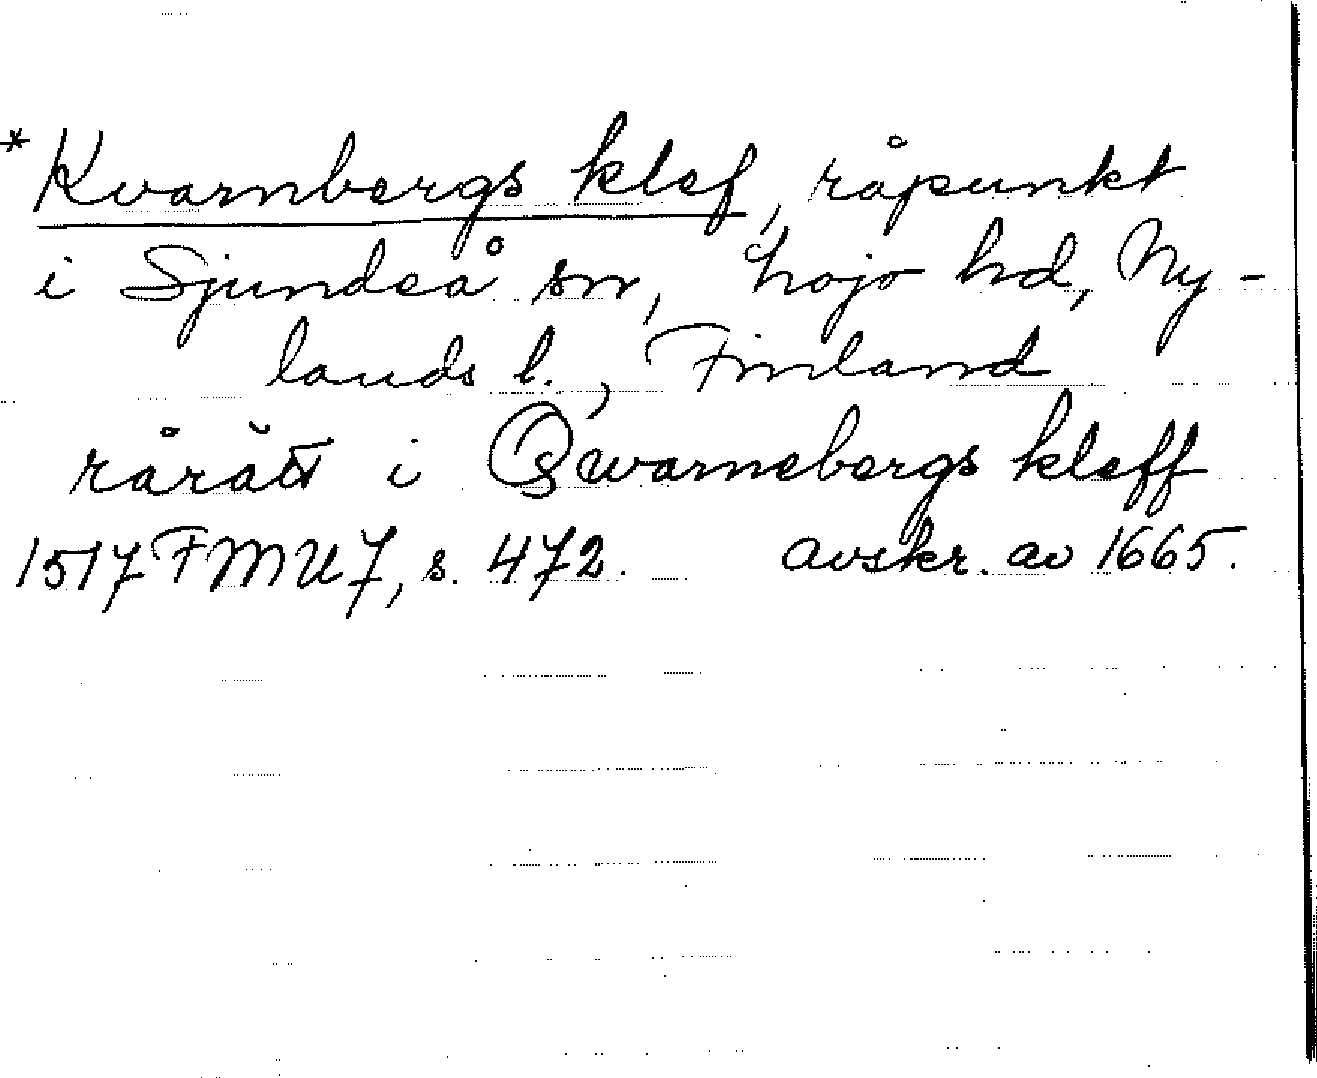 *Kvarnbergs klef, råpunkt
i Sjundeå sn, Lojo hd, Ny-
lands l., Finland
rårätt i Qwarnebergs kleff
1517 FMU 7, s. 472. avskr. av 1665.